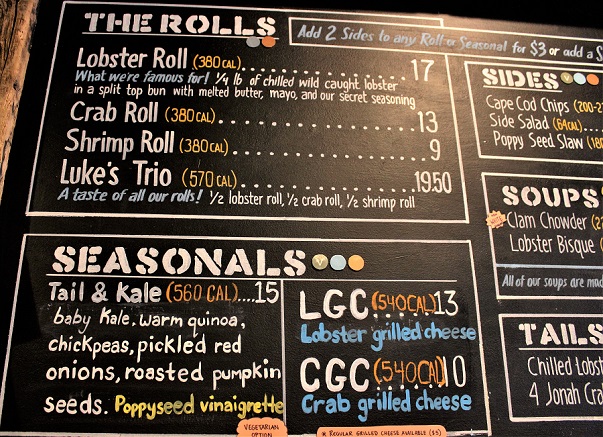 THE ROLLS
Add 2 Sides to any Roll or Seasonal for $3 or add a
Lobster Roll (380 CAL) ............ 17
What we're famous for! 1/4 lb of chilled wild caught lobster
in a split top bun with melted butter, mayo, and our secret seasoning
Crab Roll (380 CAL) ............ 13
Shrimp Roll (380 CAL) ............ 9
Luke's Trio (570 CAL) ............ 19.50
A taste of all our rolls! 1/2 lobster roll, 1/2 crab roll, 1/2 shrimp roll
SEASONALS
Tail & Kale (560 CAL)....15
baby kale, warm quinoa,
chickpeas, pickled red
onions, roasted pumpkin
seeds. Poppyseed vinaigrette
VEGETARIAN
OPTION
LGC (540CAL) 13
Lobster grilled cheese
CGC (540CAL) 10
Crab grilled cheese
* REGULAR GRILLED CHEESE AVAILABLE ($5)
SIDES
Cape Cod Chips (200-2
Side Salad (64CAL)....
Poppy Seed Slaw (180
SOUPS
Clam Chowder (2
Lobster Bisque (
All of our soups are mad
TAILS
Chilled Lobst
4 Jonah Cra